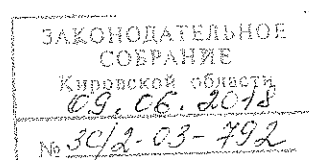 ЗАКОНОДАТЕЛЬНОЕ
СОБРАНИЕ
Кировской области
09.06.2018
№ ЗС/2-03-792